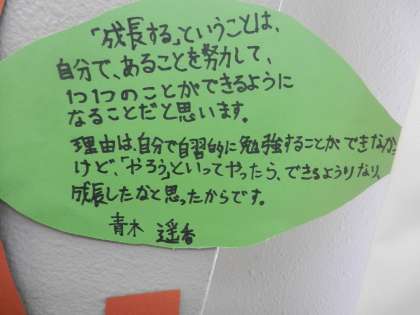 「成長する」ということは、
自分で、あることを努力して、
1つ1つのことができるように
なることだと思います。
理由は、自分で自習的に勉強することができなかった
けど、「やろう」といってやったら、できるようりなり、
成長したなと思ったからです。
青木 遥香